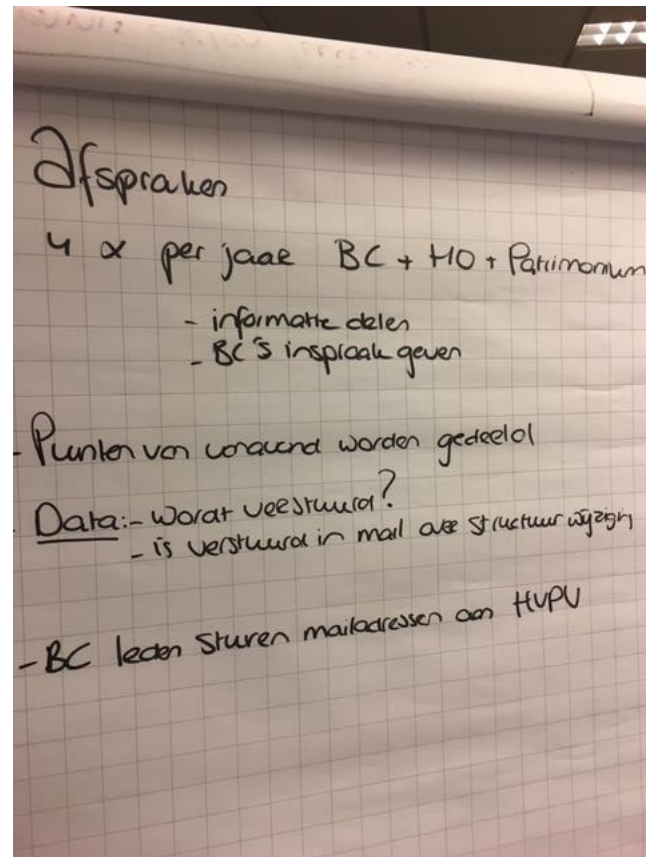 Afspraken
4 x per jaar BC + HO + Patrimonium
- informatie delen
- BC's inspraak geven
- Punten van vanavond worden gedeeld
- Data: - wordt verstuurd?
- is verstuurd in mail over structuurwijzigin
- BC leden sturen mailadressen aan HVPV